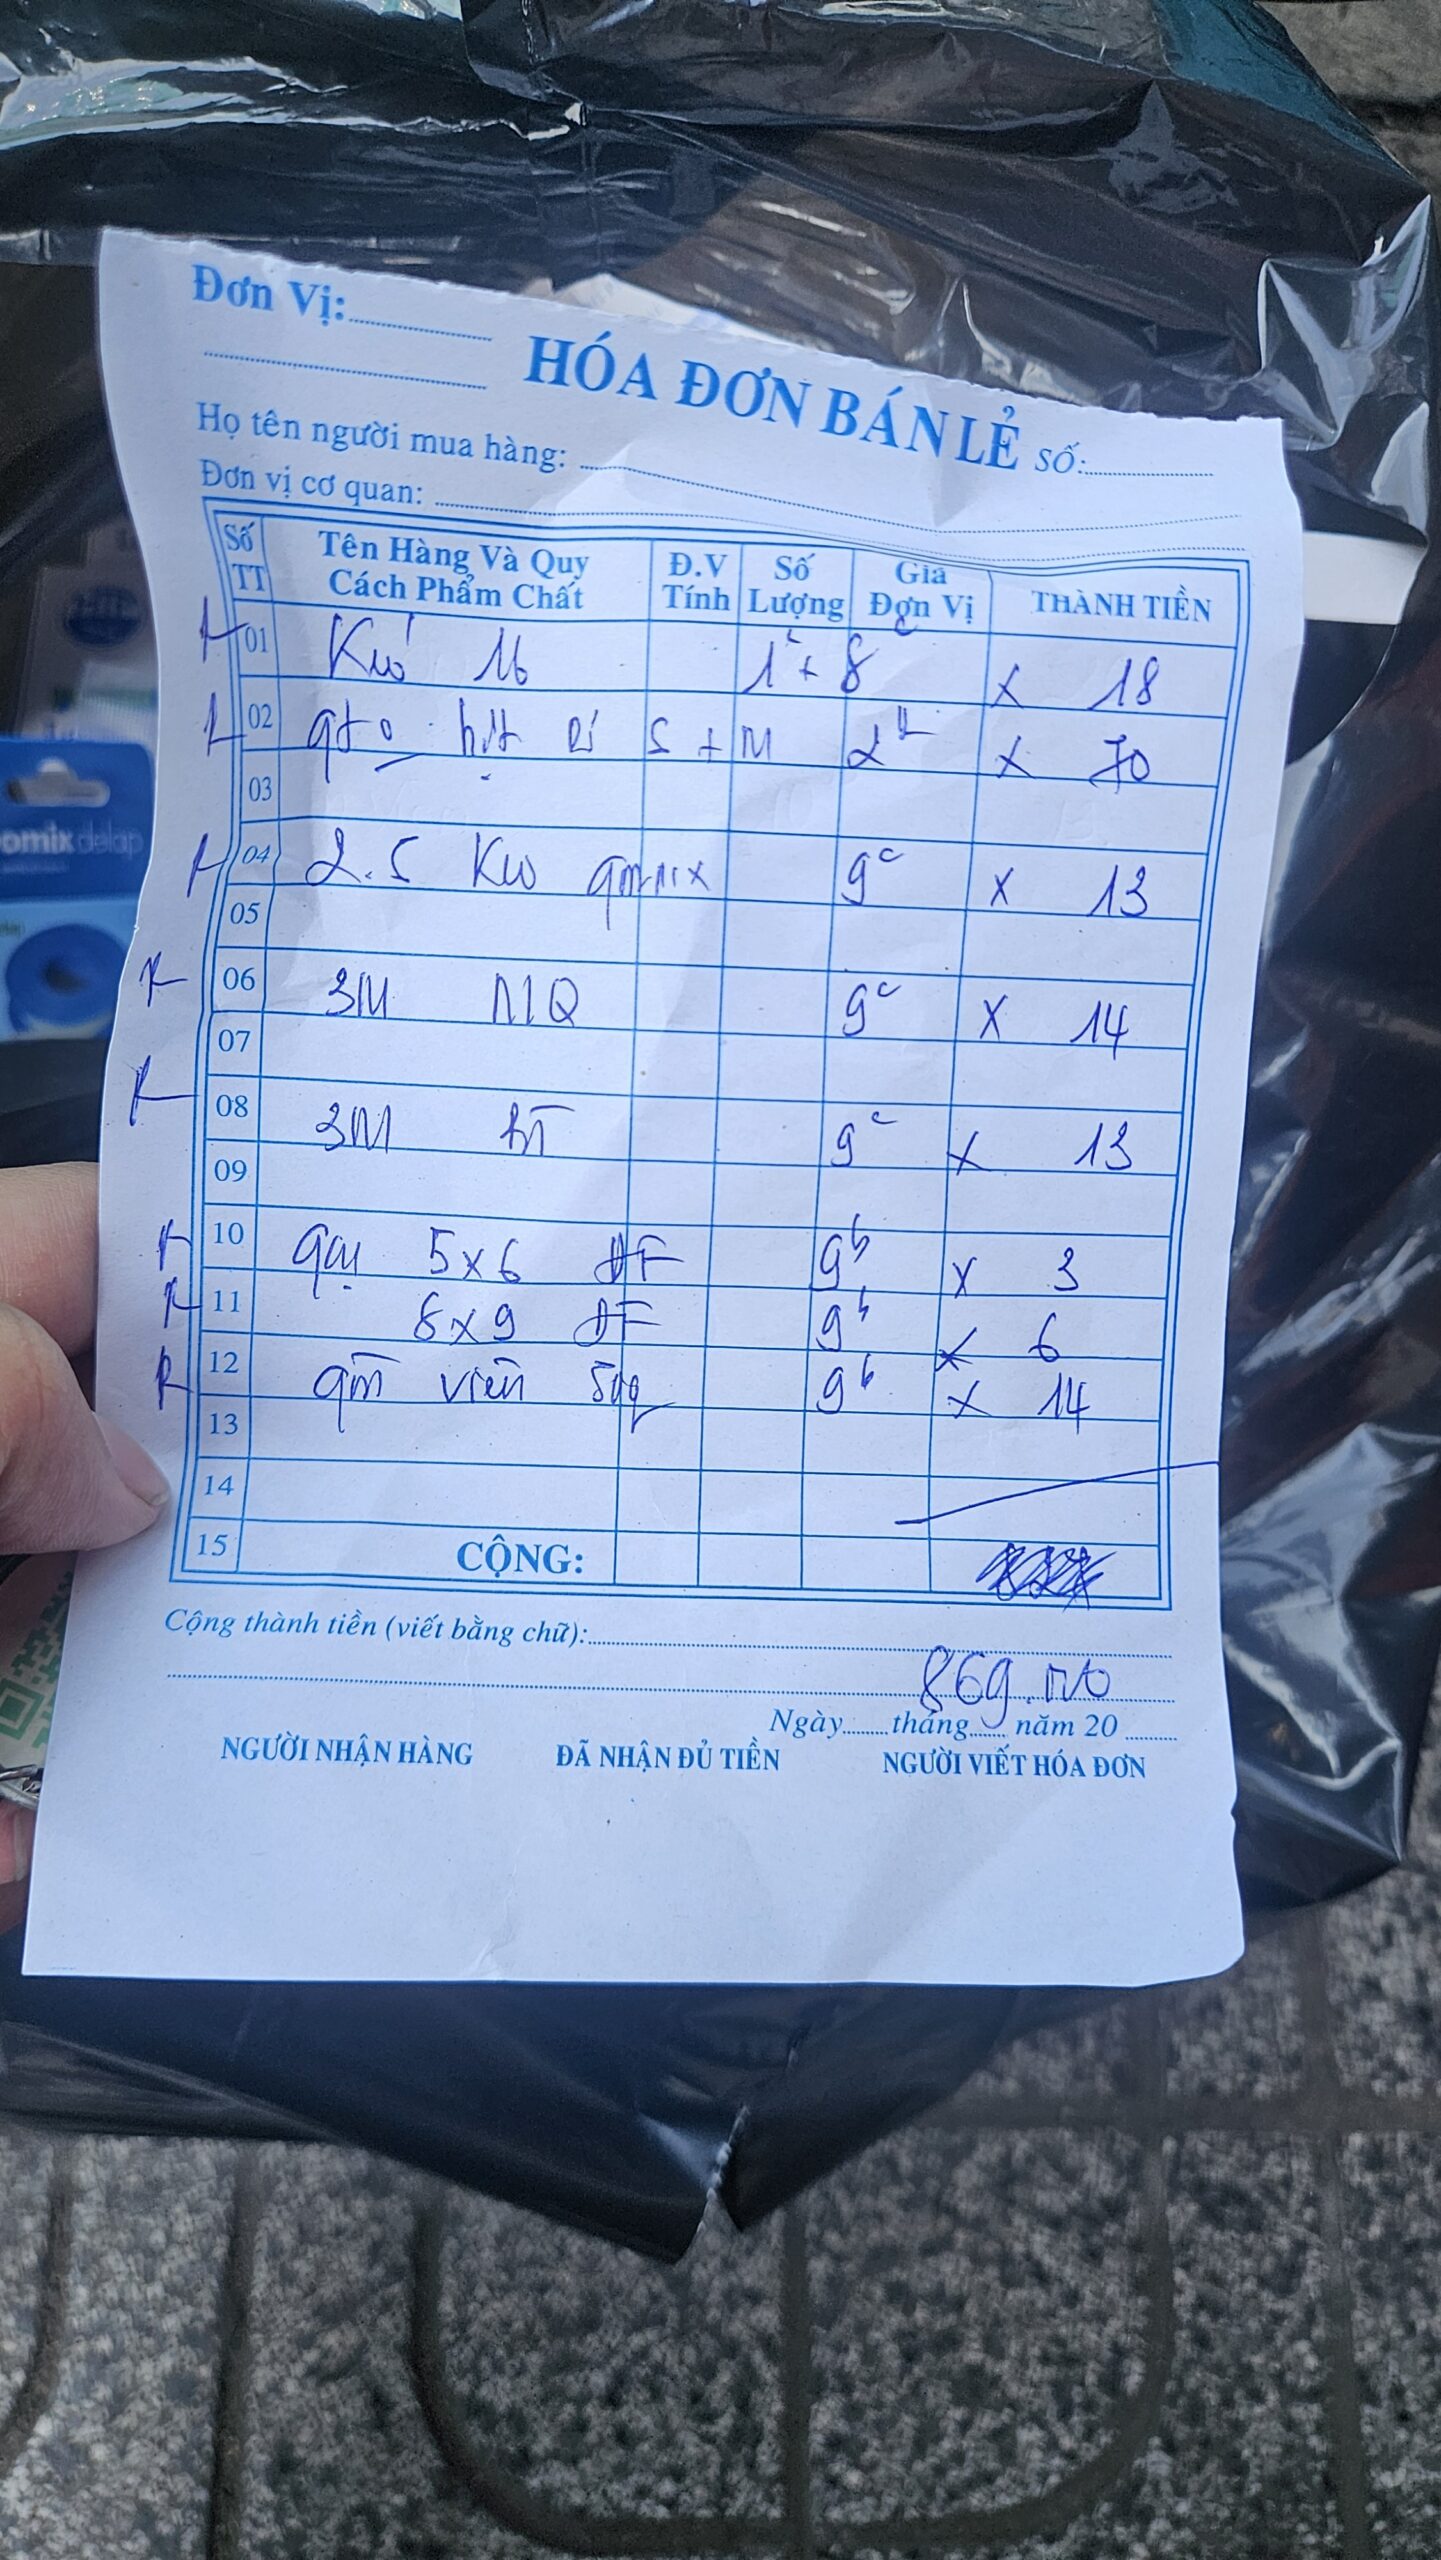 Đơn Vị:
HÓA ĐƠN BÁN LẺ SỐ:
Họ tên người mua hàng:
Đơn vị cơ quan:
Số TT Tên Hàng Và Quy Cách Phẩm Chất Đ.V Tính Số Lượng Giá Đơn Vị THÀNH TIỀN
01 Kéo 16 1c + 8c x 18
02 S + M 2 x 70
03
04 2.5 9c x 13
05
06 3M 9c x 14
07
08 3M 9c x 13
09
10 gạc 5x6 9b x 3
11 8x9 9b x 6
12 gòn viên 50g 9b x 14
13
14
15 CỘNG:
Cộng thành tiền (viết bằng chữ):
869.000
Ngày tháng năm 20
NGƯỜI NHẬN HÀNG ĐÃ NHẬN ĐỦ TIỀN NGƯỜI VIẾT HÓA ĐƠN
omix delap